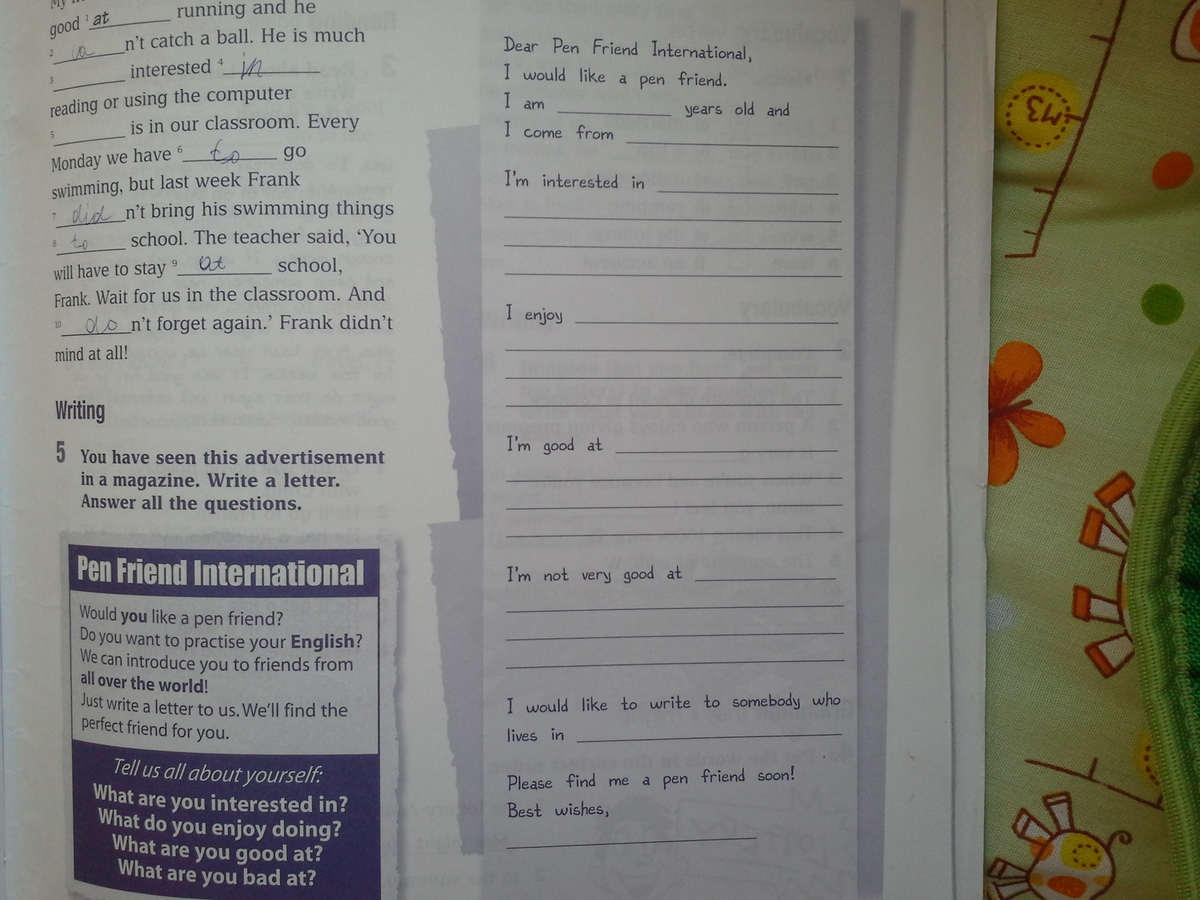 good ¹ at running and he
² ca n't catch a ball. He is much
³ interested ⁴ in
reading or using the computer
⁵ is in our classroom. Every
Monday we have ⁶ to go
swimming, but last week Frank
⁷ did n't bring his swimming things
⁸ to school. The teacher said, ‘You
will have to stay ⁹ at school,
Frank. Wait for us in the classroom. And
¹⁰ do n't forget again.’ Frank didn't
mind at all!
Writing
5 You have seen this advertisement
in a magazine. Write a letter.
Answer all the questions.
Pen Friend International
Would you like a pen friend?
Do you want to practise your English?
We can introduce you to friends from
all over the world!
Just write a letter to us. We'll find the
perfect friend for you.
Tell us all about yourself:
What are you interested in?
What do you enjoy doing?
What are you good at?
What are you bad at?
Dear Pen Friend International,
I would like a pen friend.
I am years old and
I come from
I'm interested in
I enjoy
I'm good at
I'm not very good at
I would like to write to somebody who
lives in
Please find me a pen friend soon!
Best wishes,